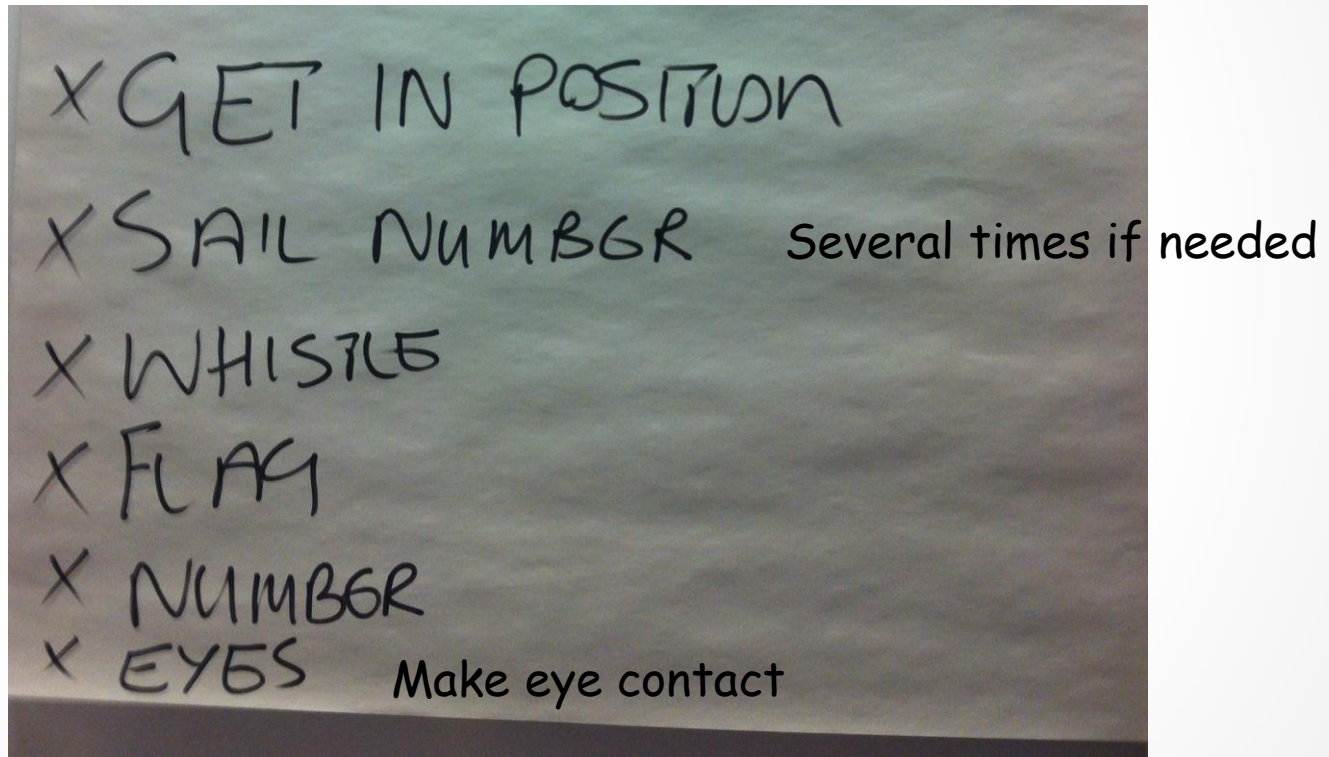 X GET IN POSITION
X SAIL NUMBER Several times if needed
X WHISTLE
X FLAG
X NUMBER
X EYES Make eye contact